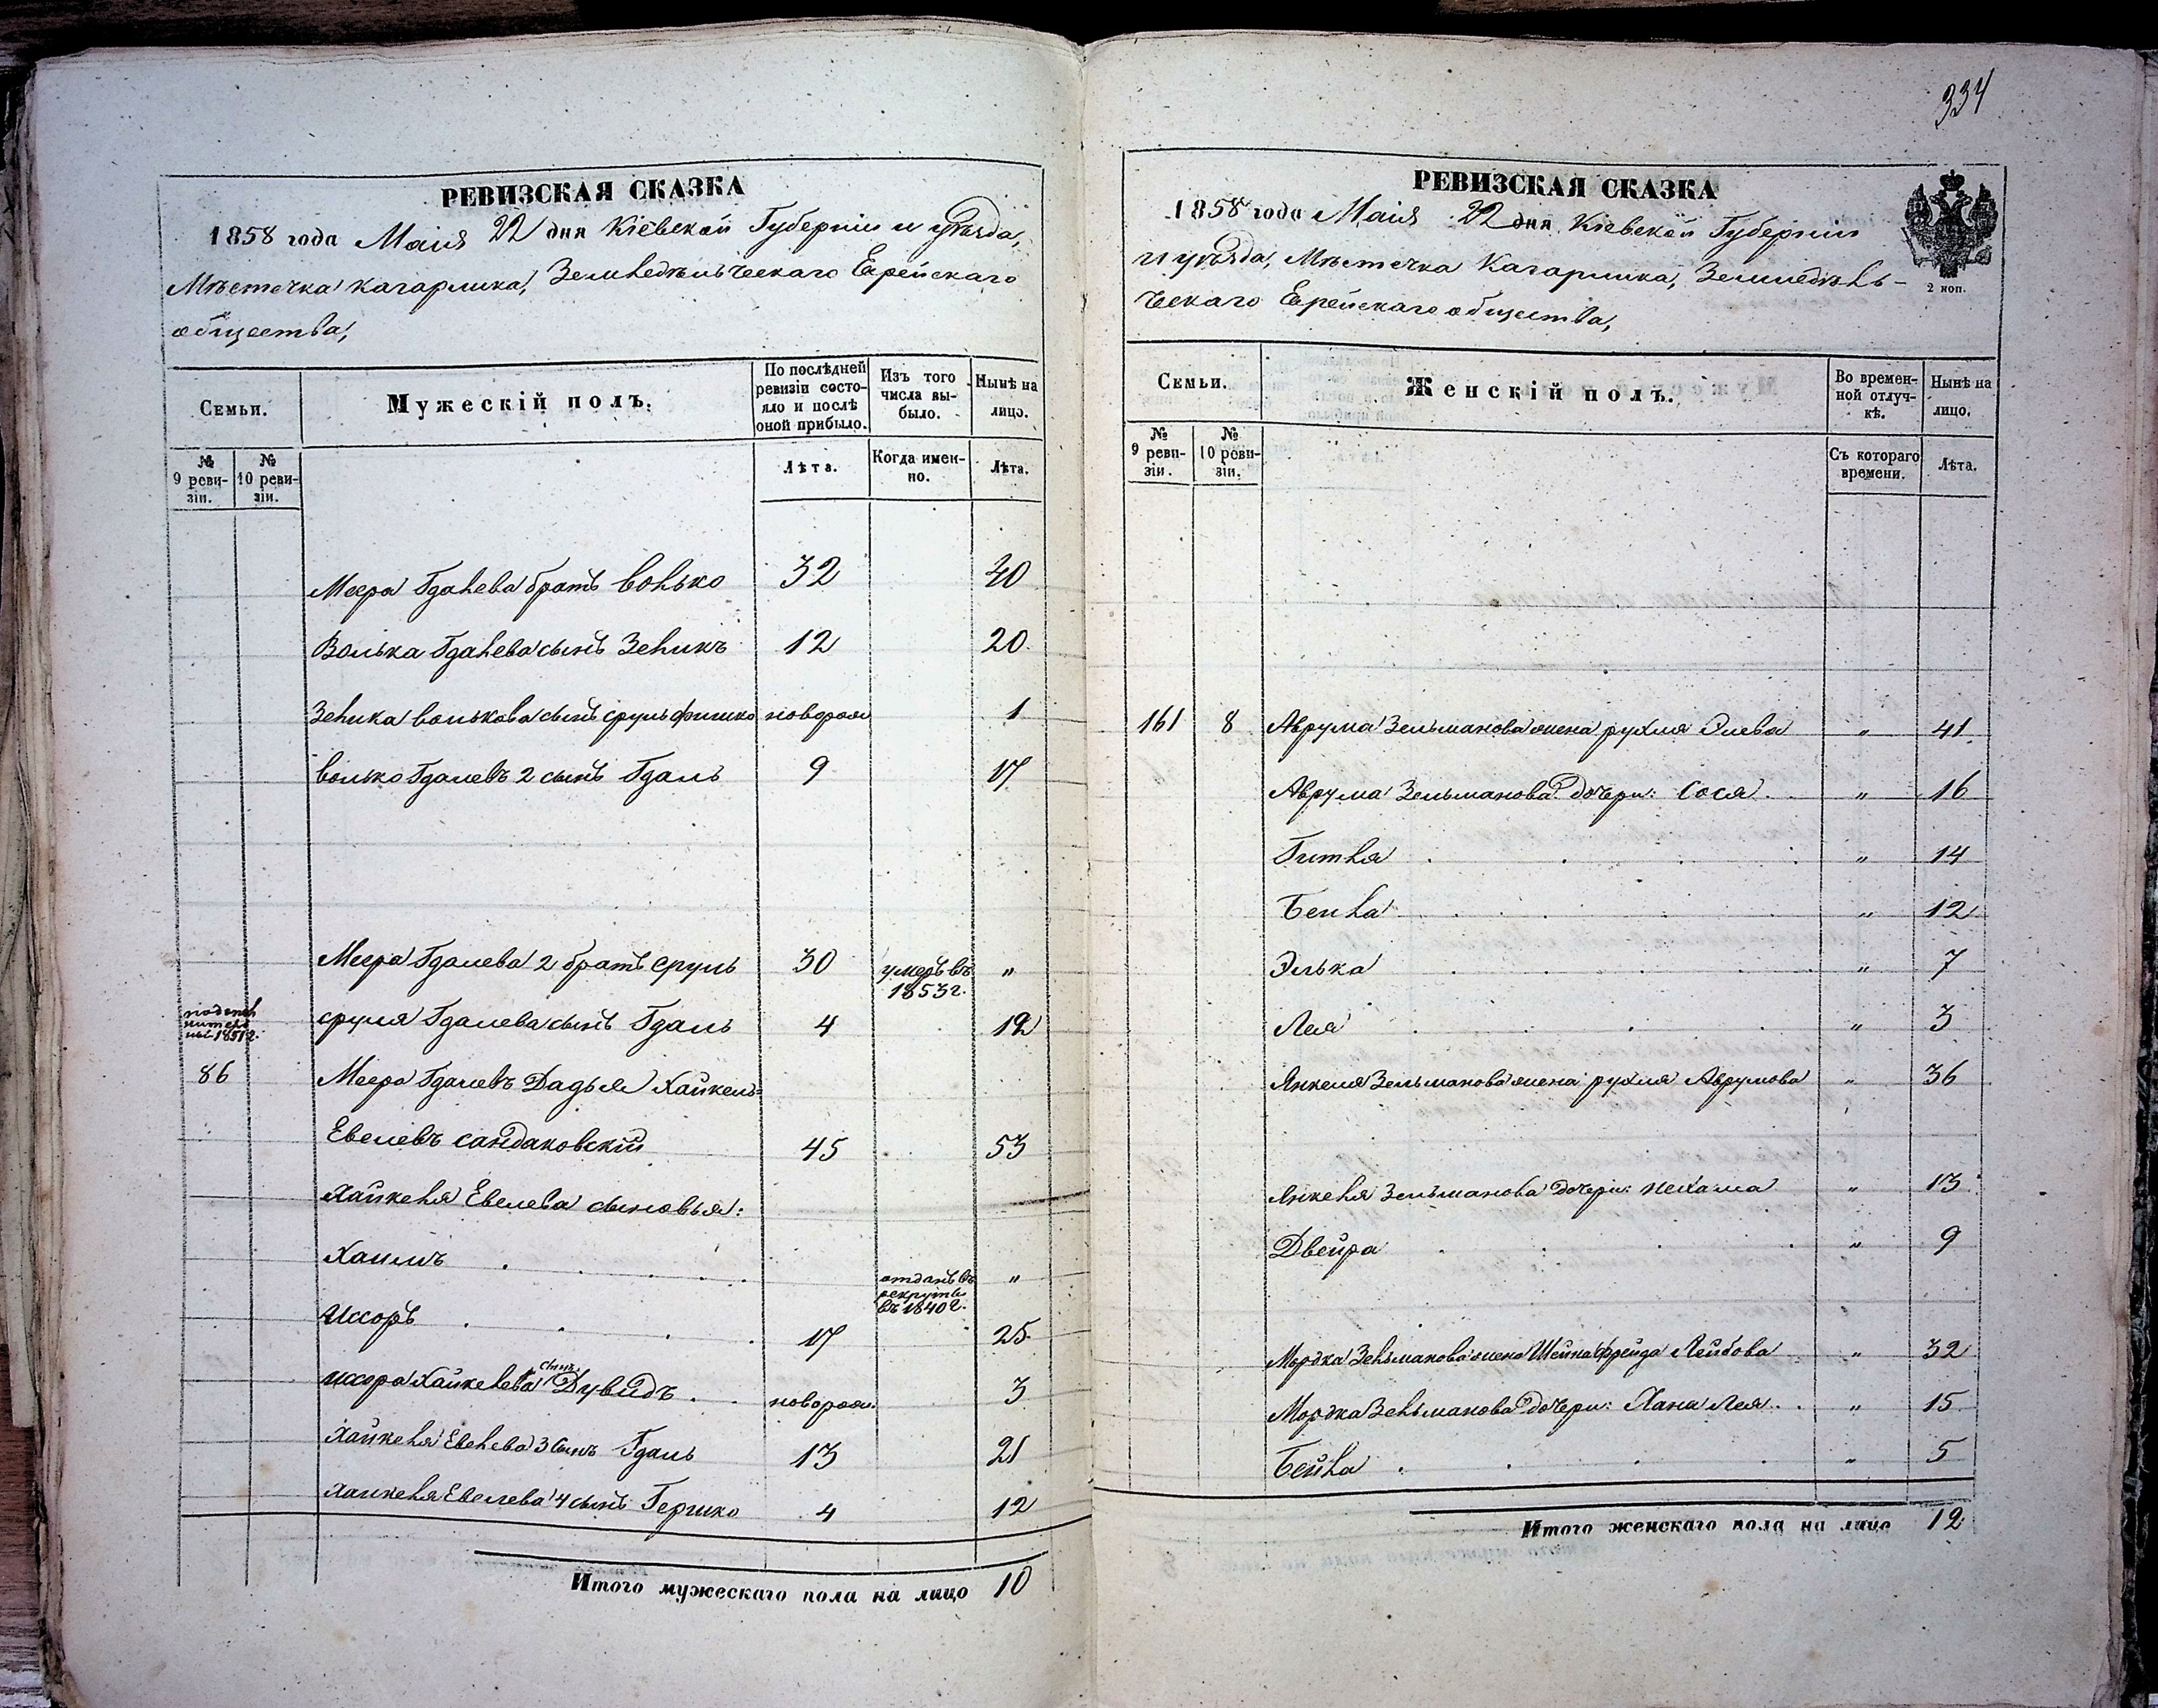 334
РЕВИЗСКАЯ СКАЗКА
1858 года Маія 22 дня Кіевской Губерніи и уѣзда,
Мѣстечка Кагарлика, Земледѣльческаго Еврейскаго
общества,
Семьи.
Мужескій полъ.
По послѣдней ревизіи состояло и послѣ оной прибыло.
Изъ того числа выбыло.
Нынѣ на лицо.
№ 9 ревизіи.
№ 10 ревизіи.
Лѣта.
Когда именно.
Лѣта.
Меера Гдалева братъВолько 32 40
Волька Гдалева сынъ Зеликъ 12 20
Зелика Волькова сынъ Сруль Фишко новорож 1
Волько Гдалевъ 2 сынъ Гдаль 9 17
Меера Гдалева 2 братъ Сруль 30 умеръ въ 1853 г. "
Сруля Гдалева сынъ Гдаль 4 12
86 Меера Гдалевъ Дядья Хайкель
Евелевъ Сандаковскій 45 53
Хайкеля Евелева сыновья:
Хаимъ отданъ въ рекруты въ 1840 г. "
Иссоръ 17 25
Иссора Хайкелева сынъ Дувидъ новорож. 3
Хайкеля Евелева 3 сынъ Гдаль 13 21
Хайкеля Евелева 4 сынъ Гершко 4 12
Итого мужескаго пола на лицо 10
РЕВИЗСКАЯ СКАЗКА
1858 года Маія 22 дня Кіевской Губерніи
и уѣзда, Мѣстечка Кагарлика, Земледѣль-
ческаго Еврейскаго общества,
2 коп.
Семьи.
Женскій полъ.
Во временной отлучкѣ.
Нынѣ на лицо.
№ 9 ревизіи.
№ 10 ревизіи.
Съ котораго времени.
Лѣта.
161 8 Аврума Зельманова жена Рухля Элева " 41
Аврума Зельманова дочери: Сося " 16
Гитля " 14
Бейла " 12
Элька " 7
Лея " 3
Янкеля Зельманова жена Рухля Аврумова " 36
Янкеля Зельманова дочери: Нехама " 13
Двейра " 9
Мордка Зельманова жена Шейна Фрейда Лейбова " 32
Мордка Зельманова дочери: Хана Лея " 15
Бейла " 5
Итого женскаго пола на лицо 12